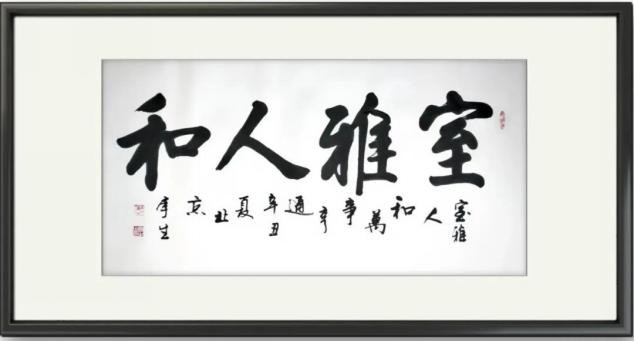 室雅人和
室雅
人
和
萬
事
亨
通
辛丑
夏
北
京
李生